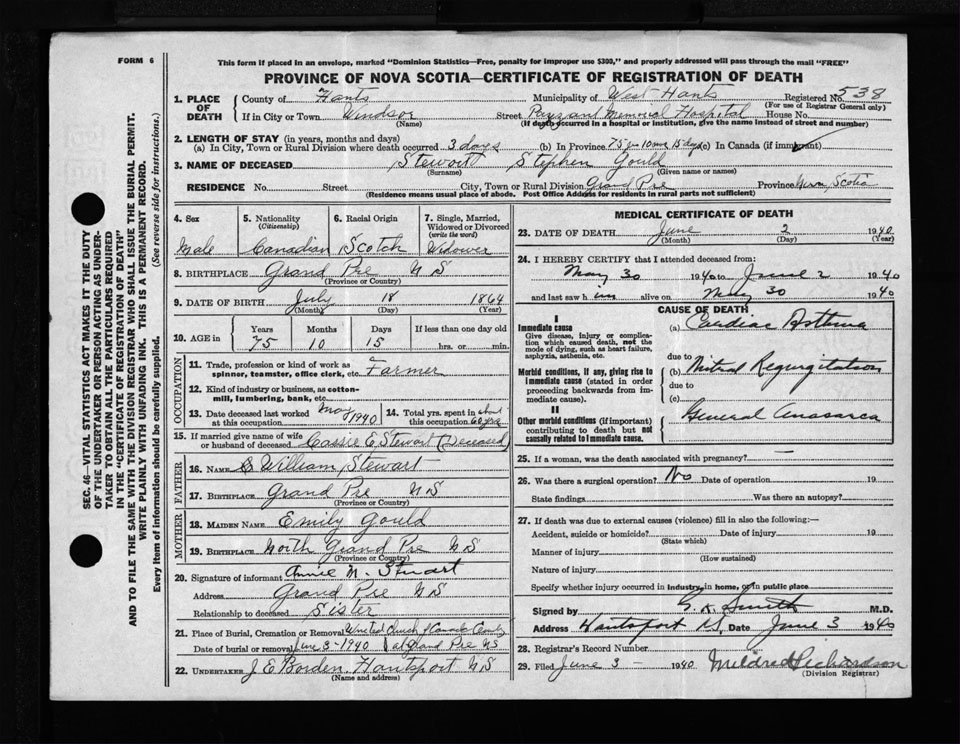 FORM 6
This form if placed in an envelope, marked "Dominion Statistics—Free, penalty for improper use $300," and properly addressed will pass through the mail "FREE"
PROVINCE OF NOVA SCOTIA—CERTIFICATE OF REGISTRATION OF DEATH
1. PLACE OF DEATH
County of Hants Municipality of West Hants Registered No. 538
(For use of Registrar General only)
If in City or Town Windsor Street Payzant Memorial Hospital House No.
(Name) (If death occurred in a hospital or institution, give the name instead of street and number)
2. LENGTH OF STAY (in years, months and days)
(a) In City, Town or Rural Division where death occurred 3 days (b) In Province 75 yrs 10 mos 15 days (c) In Canada (if immigrant)
3. NAME OF DECEASED Stewart Stephen Gould
(Surname) (Given name or names)
RESIDENCE No. Street City, Town or Rural Division Grand Pre Province Nova Scotia
(Residence means usual place of abode. Post Office Address for residents in rural parts not sufficient)
4. Sex Male
5. Nationality (Citizenship) Canadian
6. Racial Origin Scotch
7. Single, Married, Widowed or Divorced (write the word) Widower
8. BIRTHPLACE Grand Pre N S
(Province or Country)
9. DATE OF BIRTH July 18 1864
(Month) (Day) (Year)
10. AGE in Years 75 Months 10 Days 15 If less than one day old hrs. or min.
OCCUPATION
11. Trade, profession or kind of work as spinner, teamster, office clerk, etc. Farmer
12. Kind of industry or business, as cotton-mill, lumbering, bank, etc.
13. Date deceased last worked at this occupation May 1940
14. Total yrs. spent in this occupation about 60 yrs
15. If married give name of wife or husband of deceased Cassie E Stewart (Deceased)
FATHER
16. NAME William Stewart
17. BIRTHPLACE Grand Pre N S
(Province or Country)
MOTHER
18. MAIDEN NAME Emily Gould
19. BIRTHPLACE North Grand Pre N S
(Province or Country)
20. Signature of informant Annie M. Stuart
Address Grand Pre N S
Relationship to deceased Sister
21. Place of Burial, Cremation or Removal United Church of Canada Cemetery
Date of burial or removal June 3-1940 at Grand Pre NS
22. UNDERTAKER J E Borden Hantsport N S
(Name and address)
MEDICAL CERTIFICATE OF DEATH
23. DATE OF DEATH June 2 1940
(Month) (Day) (Year)
24. I HEREBY CERTIFY that I attended deceased from:
May 30 1940 to June 2 1940
and last saw him alive on May 30 1940
CAUSE OF DEATH
I
Immediate cause
Give disease, injury or complication which caused death, not the mode of dying, such as heart failure, asphyxia, asthenia, etc.
(a) Cardiac Asthma
due to
Morbid conditions, if any, giving rise to immediate cause (stated in order proceeding backwards from immediate cause).
(b) Mitral Regurgitation
due to
(c)
II
Other morbid conditions (if important) contributing to death but not causally related to immediate cause.
General Anasarca
25. If a woman, was the death associated with pregnancy? —
26. Was there a surgical operation? No Date of operation 19
State findings Was there an autopsy?
27. If death was due to external causes (violence) fill in also the following:—
Accident, suicide or homicide? Date of injury 19
(State which)
Manner of injury
(How sustained)
Nature of injury
Specify whether injury occurred in industry, in home, or in public place
Signed by G. K. Smith M.D.
Address Hantsport N.S. Date June 3 1940
28. Registrar's Record Number
29. Filed June 3 — 1940 Mildred Richardson
(Division Registrar)
SEC. 46—VITAL STATISTICS ACT MAKES IT THE DUTY
OF THE UNDERTAKER OR PERSON ACTING AS UNDER-
TAKER TO OBTAIN ALL THE PARTICULARS REQUIRED
IN THE "CERTIFICATE OF REGISTRATION OF DEATH"
AND TO FILE THE SAME WITH THE DIVISION REGISTRAR WHO SHALL ISSUE THE BURIAL PERMIT.
WRITE PLAINLY WITH UNFADING INK. THIS IS A PERMANENT RECORD.
Every item of information should be carefully supplied. (See reverse side for instructions.)